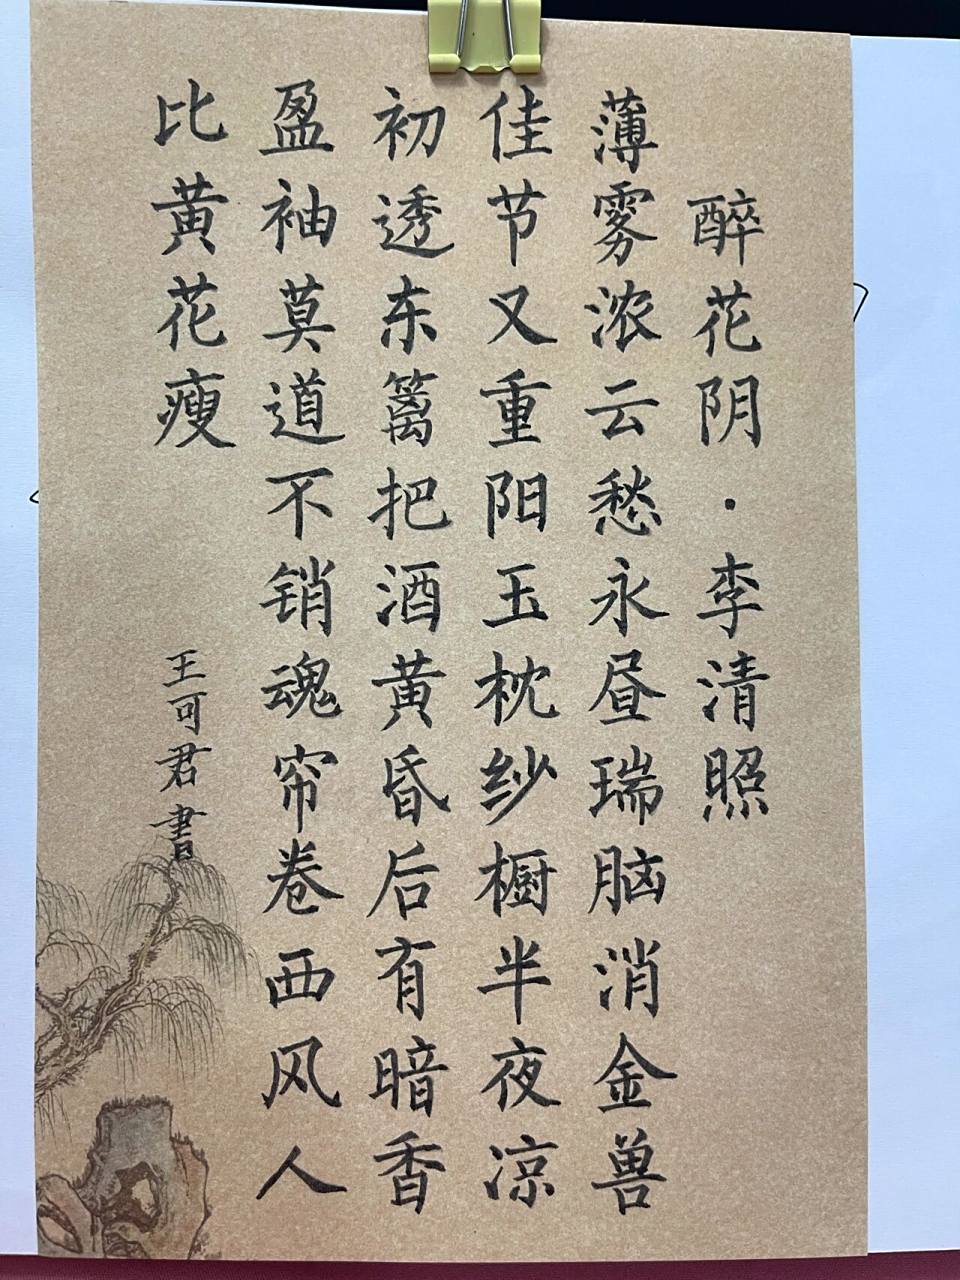 醉花阴·李清照
薄雾浓云愁永昼瑞脑消金兽
佳节又重阳玉枕纱橱半夜凉
初透东篱把酒黄昏后有暗香
盈袖莫道不销魂帘卷西风人
比黄花瘦
王可君書